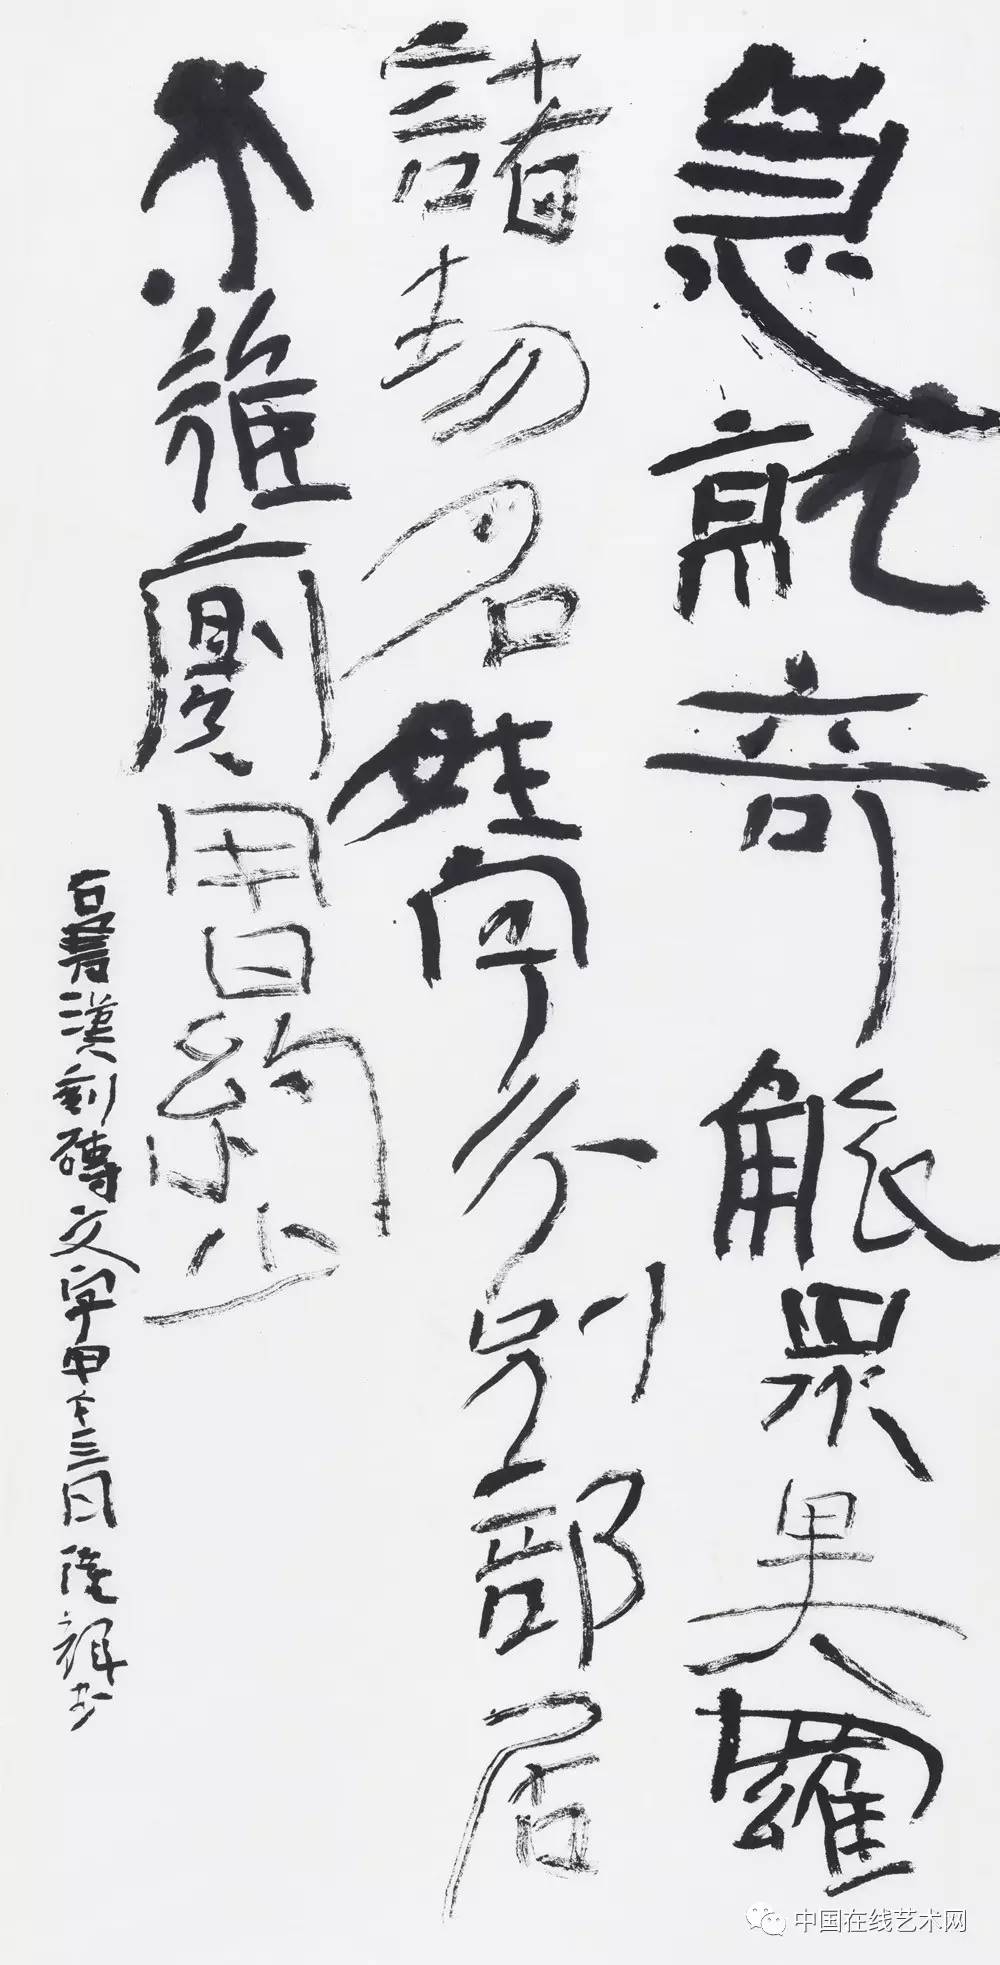 急就奇觚眾異羅
諸物名姓字分別部居
不雜廁用日約少
漢刻磚文字甲午三月
中国在线艺术网